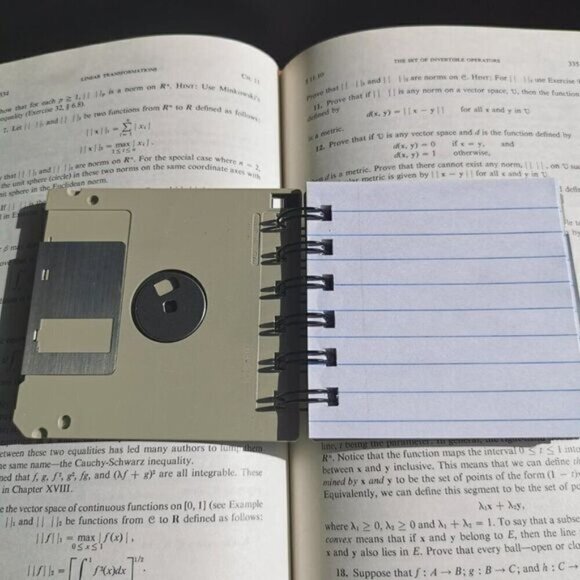 334
LINEAR TRANSFORMATIONS
CH. 11
how that for each p ≥ 1, || ||ₚ is a norm on Rⁿ. HINT: Use Minkowski's
equality (Exercise 32, § 6.8).
Let || ||₁ and || ||₂ be two functions from Rⁿ to R defined as follows:
||x||₁ = Σ |xᵢ|
||x||₂ = max |xᵢ|.
1≤i≤n
that || ||₁ and || ||₂ are norms on Rⁿ. For the special case where n = 2,
the unit sphere (circle) in these two norms on the same coordinate axes with
sphere in the Euclidean norm.
between these two equalities has led many authors to lump them
he same name—the Cauchy-Schwarz inequality.
ned that f, g, f², g², fg, and (λf + g)² are all integrable. These
in Chapter XVIII.
e the vector space of continuous functions on [0, 1] (see Example
||₁ and || ||₂ be functions from C to R defined as follows:
||f||₁ = max |f(x)|,
0≤x≤1
||f||₂ = [∫₀¹ f²(x)dx]^1/2
§ 11.10
THE SET OF INVERTIBLE OPERATORS
335
Prove that || ||₁ and || ||₂ are norms on C. HINT: For || ||₂ use Exercise
11. Prove that if || || is any norm on a vector space V, then the function
defined by
d(x, y) = ||x − y|| for all x and y in V
is a metric.
12. Prove that if V is any vector space and d is the function defined by
d(x, y) = 0 if x = y, and
d(x, y) = 1 otherwise,
then d is a metric. Prove that there cannot exist any norm, || ||, on V
metric is given by ||x − y|| for all x and y in V.
line, t being the parameter. In general, the
Rⁿ. Notice that the function maps the interval 0 ≤ t ≤ 1 into
between x and y inclusive. This means that we can define
mined by x and y to be the set of points of the form (1 − t)
Equivalently, we can define this segment to be the set of po
λ₁x + λ₂y,
where λ₁ ≥ 0, λ₂ ≥ 0 and λ₁ + λ₂ = 1. To say that a subse
convex means that if x and y belong to E, then the line
x and y also lies in E. Prove that every ball—open or clo
18. Suppose that f : A → B; g : B → C; and h : C →